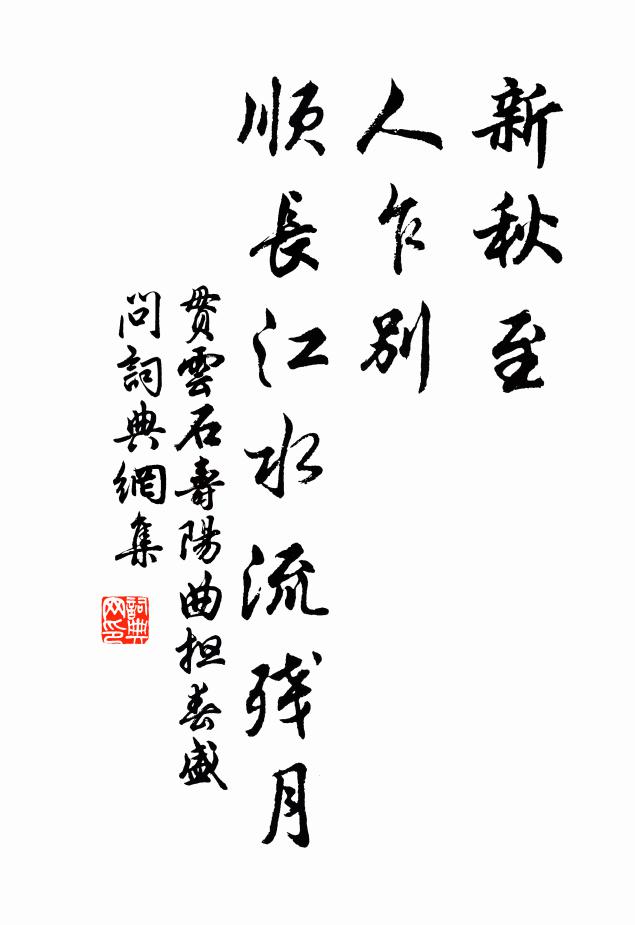 新秋至
人乍別
順長江水流残月
貫雲石壽陽曲担春盛
問詞典網集
詞典
网印